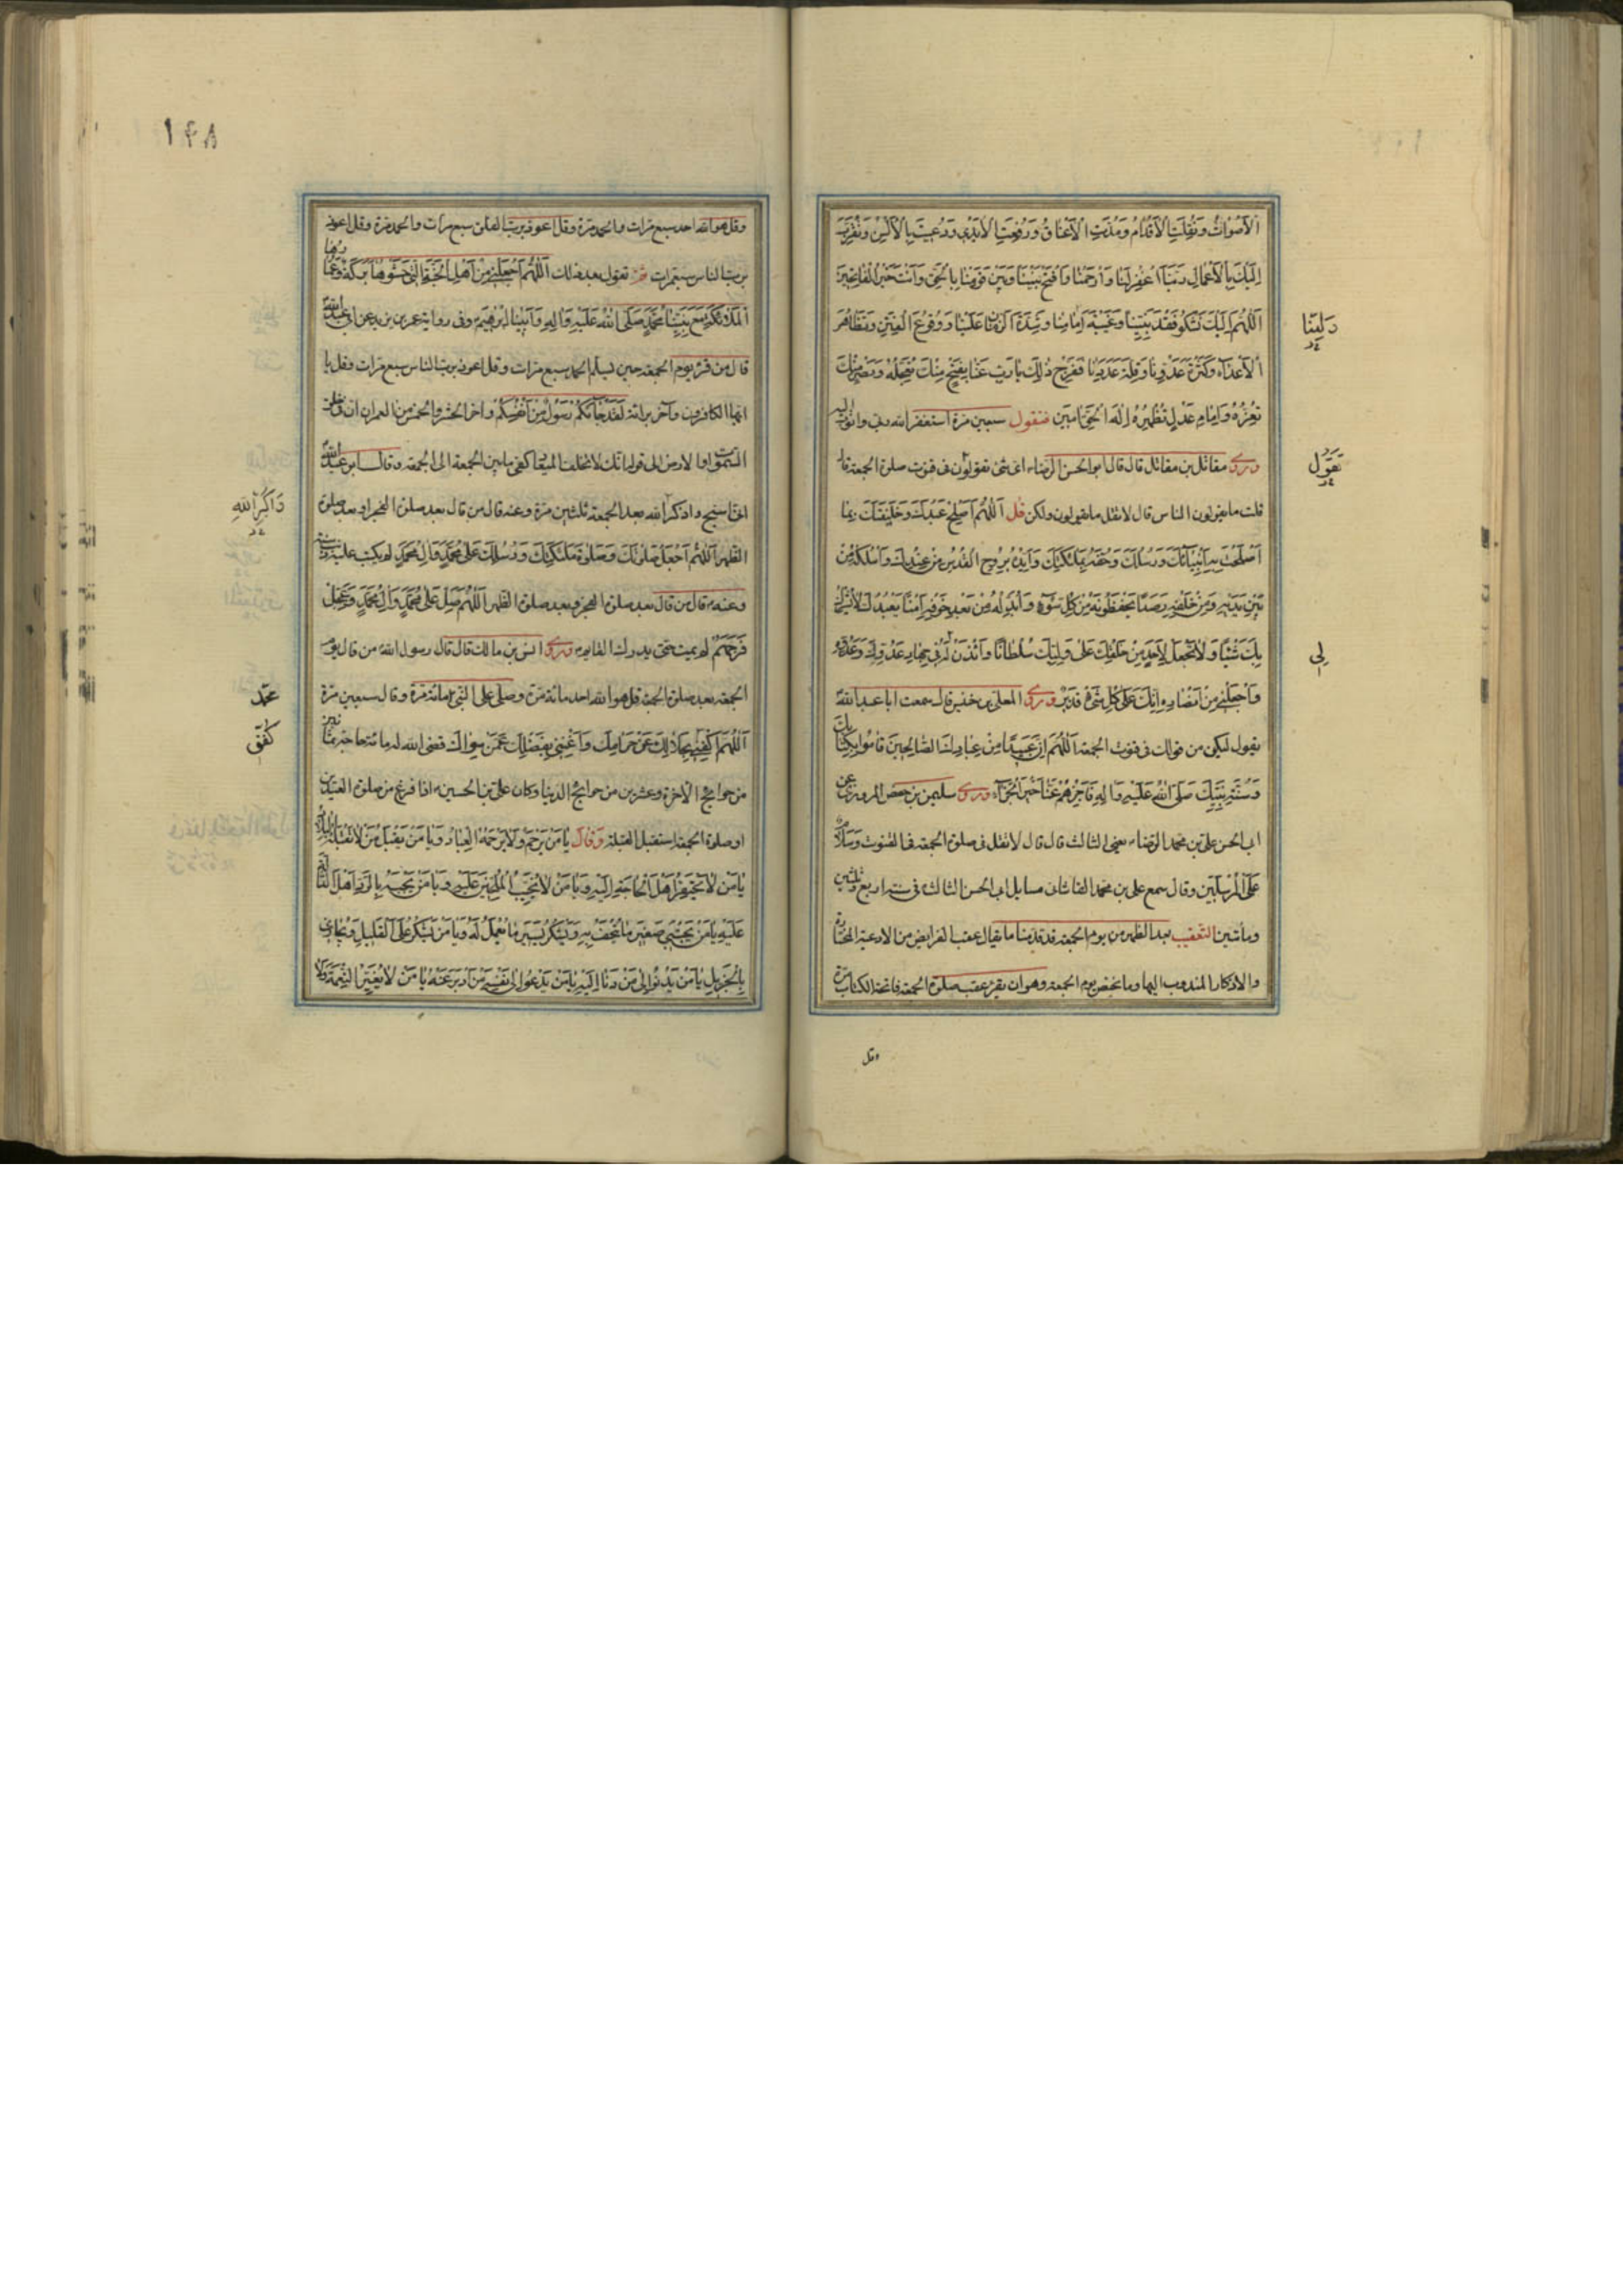 الْأَصْوَاتُ وَنُقِلَتِ الْأَقْدَامُ وَمُدَّتِ الْأَعْنَاقُ وَرُفِعَتِ الْأَيْدِي وَدُعِيَتْ بِالْأَلْسُنِ وَتُقُرِّبَ
إِلَيْكَ بِالْأَعْمَالِ رَبَّنَا اغْفِرْ لَنَا وَارْحَمْنَا وَافْتَحْ بَيْنَنَا وَبَيْنَ قَوْمِنَا بِالْحَقِّ وَأَنْتَ خَيْرُ الْفَاتِحِينَ
اَللّٰهُمَّ إِلَيْكَ نَشْكُو فَقْدَ نَبِيِّنَا وَغَيْبَةَ إِمَامِنَا وَشِدَّةَ الزَّمَانِ عَلَيْنَا وَوُقُوعَ الْفِتَنِ وَتَظَاهُرَ
الْأَعْدَاءِ وَكَثْرَةَ عَدُوِّنَا وَقِلَّةَ عَدَدِنَا فَفَرِّجْ ذٰلِكَ يَا رَبِّ عَنَّا بِفَتْحٍ مِنْكَ تُعَجِّلُهُ وَنَصْرٍ مِنْكَ
تُعِزُّهُ وَإِمَامِ عَدْلٍ تُظْهِرُهُ إِلٰهَ الْحَقِّ آمِينَ فتقول سبعين مرة استغفر الله ربي واتوب اليه
وروى مقاتل بن مقاتل قال قال ابو الحسن الرضاء اى شئ تقولون فى قنوت صلوة الجمعة قال
قلت ما يقول الناس قال لا تقل ما يقولون ولكن قل اَللّٰهُمَّ أَصْلِحْ عَبْدَكَ وَخَلِيفَتَكَ بِمَا
أَصْلَحْتَ بِهِ أَنْبِيَائَكَ وَرُسُلَكَ وَحُفَّهُ بِمَلٰئِكَتِكَ وَأَيِّدْهُ بِرُوحِ الْقُدُسِ مِنْ عِنْدِكَ وَاسْلُكْهُ مِنْ
بَيْنِ يَدَيْهِ وَمِنْ خَلْفِهِ رَصَدًا يَحْفَظُونَهُ مِنْ كُلِّ سُوءٍ وَأَبْدِلْهُ مِنْ بَعْدِ خَوْفِهِ أَمْنًا يَعْبُدُكَ لَا يُشْرِكُ
بِكَ شَيْئًا وَلَا تَجْعَلْ لِأَحَدٍ مِنْ خَلْقِكَ عَلَى وَلِيِّكَ سُلْطَانًا وَائْذَنْ لَهُ فِي جِهَادِ عَدُوِّكَ وَعَدُوِّهِ
وَاجْعَلْنِي مِنْ أَنْصَارِهِ إِنَّكَ عَلَى كُلِّ شَيْءٍ قَدِيرٌ وروى المعلى بن خنيس قال سمعت ابا عبد الله
يقول ليكن من قولك فى قنوت الجمعة اَللّٰهُمَّ إِنَّ عَبِيدًا مِنْ عِبَادِكَ الصَّالِحِينَ قَامُوا بِكِتَابِكَ
وَسُنَّةِ نَبِيِّكَ صَلَّى اللّٰهُ عَلَيْهِ وَآلِهِ فَاجْزِهِمْ عَنَّا خَيْرَ الْجَزَاءِ وروى سليمن بن حفص المروزى عن
ابى الحسن على بن محمد الرضاء يعنى الثالث قال قال لا تقل فى صلوة الجمعة فى القنوت وَسَلَامٌ
عَلَى الْمُرْسَلِينَ وقال سمع على بن محمد القاشانى مسايل ابى الحسن الثالث فى سنة اربع وثلثين
ومأتين التعقيب بعد الظهر من يوم الجمعة قد قدمنا ما يقال عقيب الفرايض من الادعية المختارة
والاذكار المندوب اليها وما يختص يوم الجمعة وهو ان يقرء عقيب صلوة الجمعة فاتحة الكتاب مرة
وقل
ولينا
تقول
لى
١٤٨
وقل هو الله احد سبع مرات والحمد مرة وقل اعوذ برب الفلق سبع مرات والحمد مرة وقل اعوذ
برب الناس سبع مرات ثم تقول بعد ذلك اَللّٰهُمَّ اجْعَلْنِي مِنْ أَهْلِ الْجَنَّةِ الَّتِي حَشْوُهَا بَرَكَةٌ وَعُمَّارُهَا
الْمَلٰئِكَةُ مَعَ نَبِيِّنَا مُحَمَّدٍ صَلَّى اللّٰهُ عَلَيْهِ وَآلِهِ وَأَبِينَا إِبْرٰهِيمَ وفى رواية عمر بن يزيد عن ابى عبد الله
قال من قرء يوم الجمعة حين يسلم الحمد سبع مرات وقل اعوذ برب الناس سبع مرات وقل يا
ايها الكافرون وآخر برائة لَقَدْ جَاءَكُمْ رَسُولٌ مِنْ أَنْفُسِكُمْ واخر الحشر والخمس من ال عمران ان فى خلق
السموات والارض الى قوله انك لا تخلف الميعاد كفى ما بين الجمعة الى الجمعة وقال ابو عبد الله
اذكر الله بعد الجمعة ثلثين مرة وعنه قال من قال بعد صلوة الفجر او بعد صلوة
الظهر اَللّٰهُمَّ اجْعَلْ صَلٰوتَكَ وَصَلٰوةَ مَلٰئِكَتِكَ وَرُسُلِكَ عَلَى مُحَمَّدٍ وَآلِ مُحَمَّدٍ لم يكتب عليه ذنب سنة
وعنه قال من قال بعد صلوة الفجر وبعد صلوة الظهر اَللّٰهُمَّ صَلِّ عَلَى مُحَمَّدٍ وَآلِ مُحَمَّدٍ وَعَجِّلْ
فَرَجَهُمْ لم يمت حتى يدرك القايم وروى انس بن مالك قال قال رسول الله من قال يوم
الجمعة بعد صلوة الجمعة قل هو الله احد مائة مرة وصلى على النبى مائة مرة وقال سبعين مرة
اَللّٰهُمَّ اكْفِنِي بِحَلَالِكَ عَنْ حَرَامِكَ وَأَغْنِنِي بِفَضْلِكَ عَمَّنْ سِوَاكَ قضى الله له مائة حاجة ثمانين
من حوايج الاخرة وعشرين من حوايج الدنيا وكان على بن الحسين اذا فرغ من صلوة العيدين
او صلوة الجمعة استقبل القبلة وقال يَا مَنْ يَرْحَمُ مَنْ لَا يَرْحَمُهُ الْعِبَادُ وَيَا مَنْ يَقْبَلُ مَنْ لَا تَقْبَلُهُ الْبِلَادُ
يَا مَنْ لَا يَحْتَقِرُ أَهْلَ الْحَاجَةِ إِلَيْهِ وَيَا مَنْ لَا يُخَيِّبُ الْمُلِحِّينَ عَلَيْهِ وَيَا مَنْ لَا يَجْبَهُ بِالرَّدِّ أَهْلَ الدَّالَّةِ
عَلَيْهِ يَا مَنْ يَجْتَبِي صَغِيرَ مَا يُتْحَفُ بِهِ وَيَشْكُرُ يَسِيرَ مَا يُعْمَلُ لَهُ وَيَا مَنْ يَشْكُرُ عَلَى الْقَلِيلِ وَيُجَازِي
بِالْجَزِيلِ يَا مَنْ يَدْنُو إِلَى مَنْ دَنَا إِلَيْهِ يَا مَنْ يَدْعُو إِلَى نَفْسِهِ مَنْ أَدْبَرَ عَنْهُ يَا مَنْ لَا يُغَيِّرُ النِّعْمَةَ وَلَا
ذاكر الله
محمد